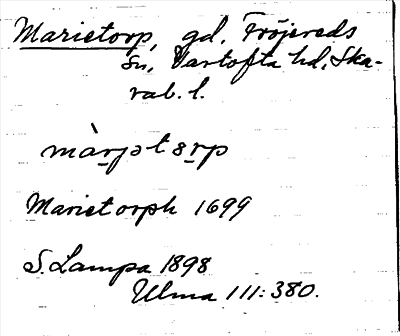 Marietorp, gd. Fröjereds
sn, Vartofta hd, Ska-
rab. l.
Marietorph 1699
S. Lampa 1898
Ulma 111:380.